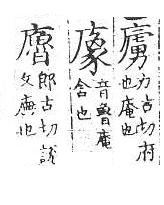 力古切府
也庵也
音魯庵
舍也
郎古切說
文廡也